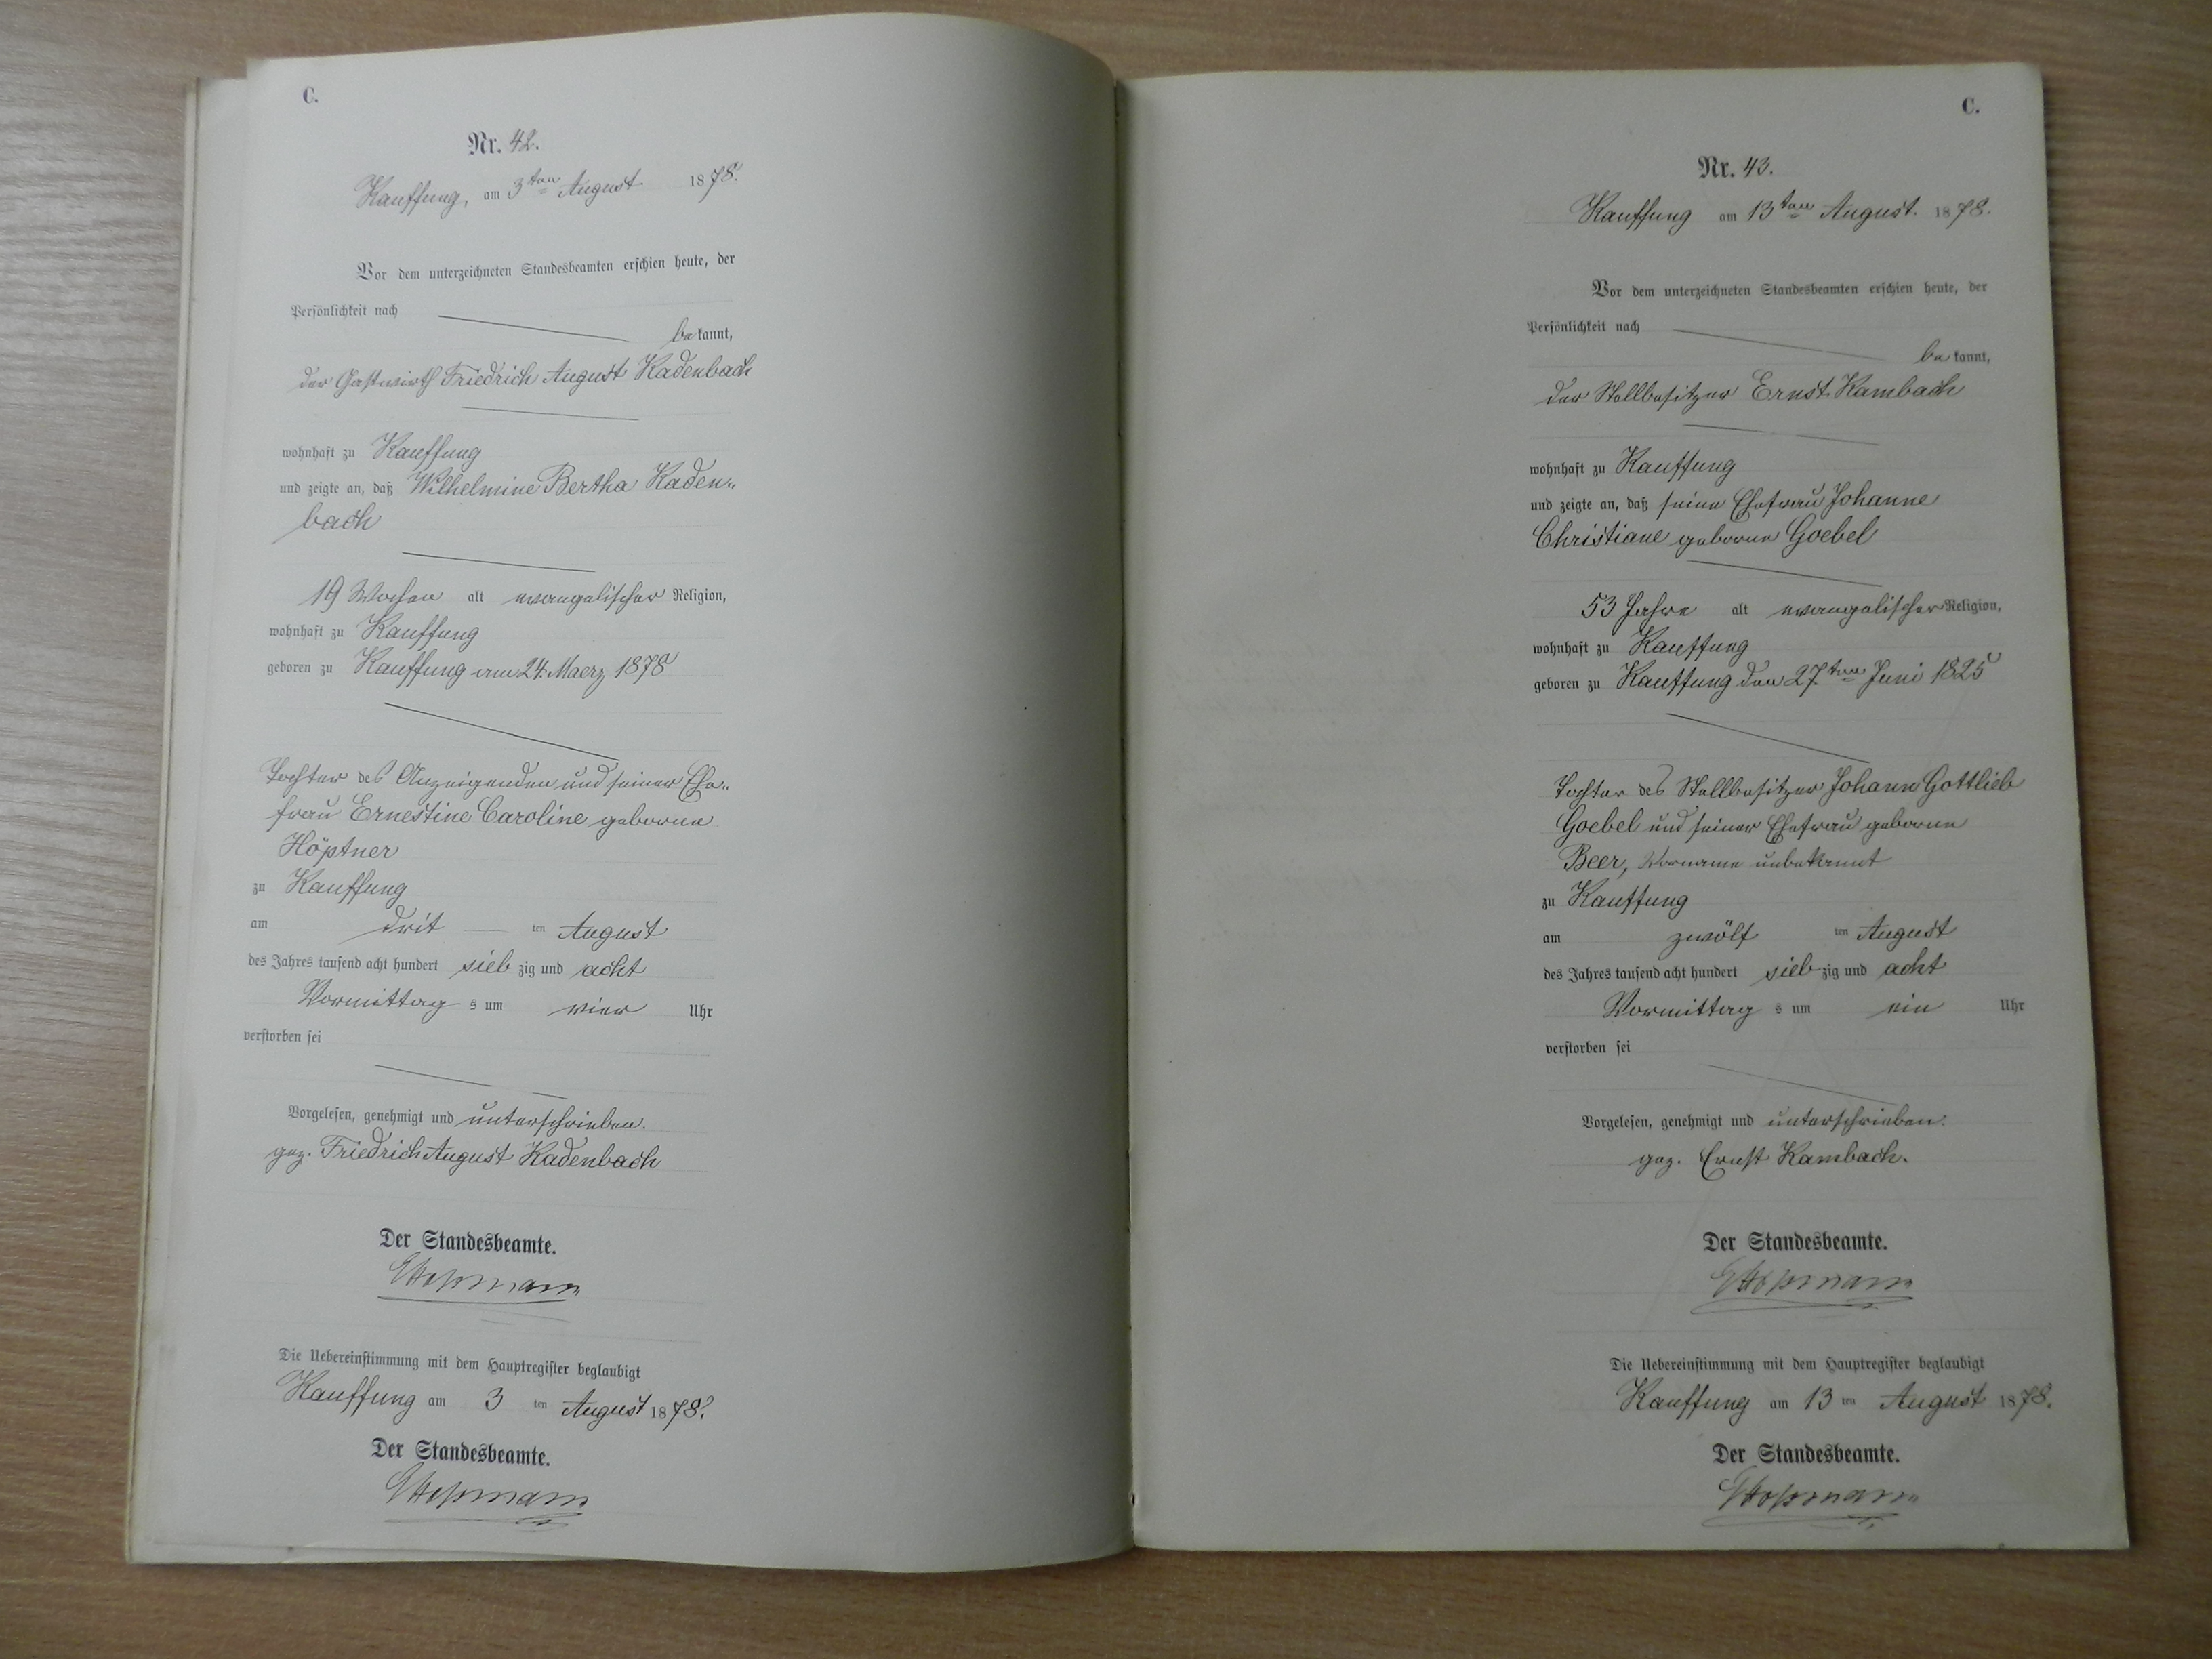 C.
Nr. 42.
Kauffung, am 3ten August 1878.
Vor dem unterzeichneten Standesbeamten erschien heute, der
Persönlichkeit nach
bekannt,
der Gastwirth Friedrich August Kadenbach
wohnhaft zu Kauffung
und zeigte an, daß Wilhelmine Bertha Kaden„
bach
19 Wochen alt evangelischer Religion,
wohnhaft zu Kauffung
geboren zu Kauffung am 24. Maerz 1878
Tochter des Anzeigenden und seiner Ehe„
frau Ernestine Caroline geborne
Höptner
zu Kauffung
am drit ten August
des Jahres tausend acht hundert siebzig und acht
Vormittags um vier Uhr
verstorben sei
Vorgelesen, genehmigt und unterschrieben.
gez. Friedrich August Kadenbach
Der Standesbeamte.
Die Uebereinstimmung mit dem Hauptregister beglaubigt
Kauffung am 3 ten August 1878.
Der Standesbeamte.
C.
Nr. 43.
Kauffung am 13ten August. 1878.
Vor dem unterzeichneten Standesbeamten erschien heute, der
Persönlichkeit nach
bekannt,
der Stellbesitzer Ernst Kambach
wohnhaft zu Kauffung
und zeigte an, daß seine Ehefrau Johanne
Christiane geborne Goebel
53 Jahre alt evangelischer Religion,
wohnhaft zu Kauffung
geboren zu Kauffung den 27ten Juni 1825
Tochter des Stellbesitzer Johann Gottlieb
Goebel und seiner Ehefrau geborne
Beer, Vorname unbekannt
zu Kauffung
am zwölf ten August
des Jahres tausend acht hundert siebzig und acht
Vormittags um ein Uhr
verstorben sei
Vorgelesen, genehmigt und unterschrieben.
gez. Ernst Kambach.
Der Standesbeamte.
Die Uebereinstimmung mit dem Hauptregister beglaubigt
Kauffung am 13 ten August 1878.
Der Standesbeamte.